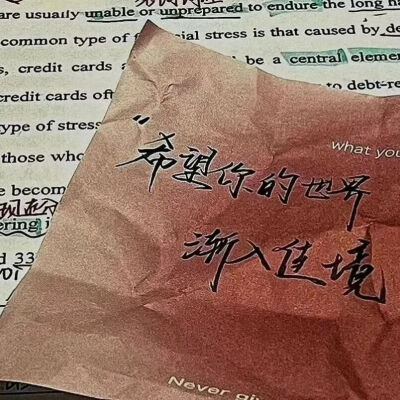 are usually unable or unprepared to endure the long ha
common type of financial stress is that caused by de
, credit cards be a central elemen
credit cards oft to debt-re
type of stress
those who what you
"希望你的世界
become
渐入佳境
ering i
d 33
Never giv